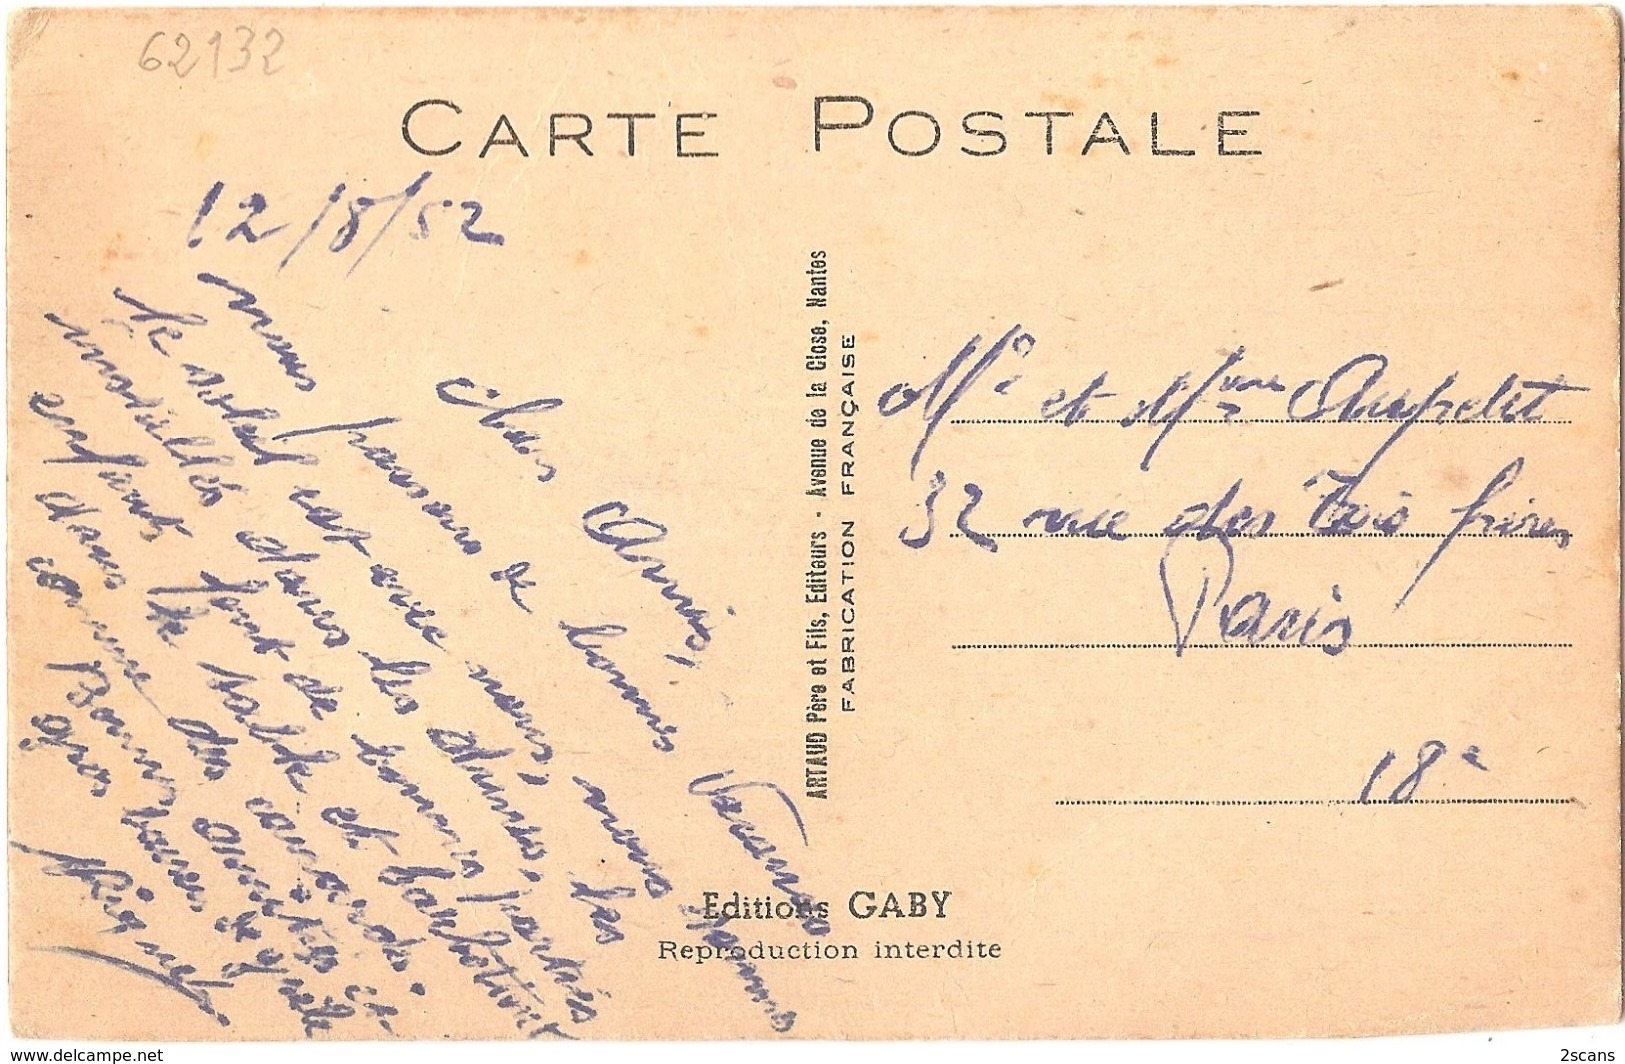 62132
CARTE POSTALE
12/8/52
Chers Amis,
nous passons de bonnes Vacances
le soleil est avec nous, nous sommes
installés dans les dunes, les
enfants font de bonnes parties
dans le sable et barbotent
comme des canards.
Bonnes amitiés et
gros baisers de
ARTAUD Père et Fils, Editeurs - Avenue de la Close, Nantes
FABRICATION FRANÇAISE
Mr et Mme Aupetit
32 rue des Trois frères
Paris
18e
Editions GABY
Reproduction interdite
www.delcampe.net
2scans